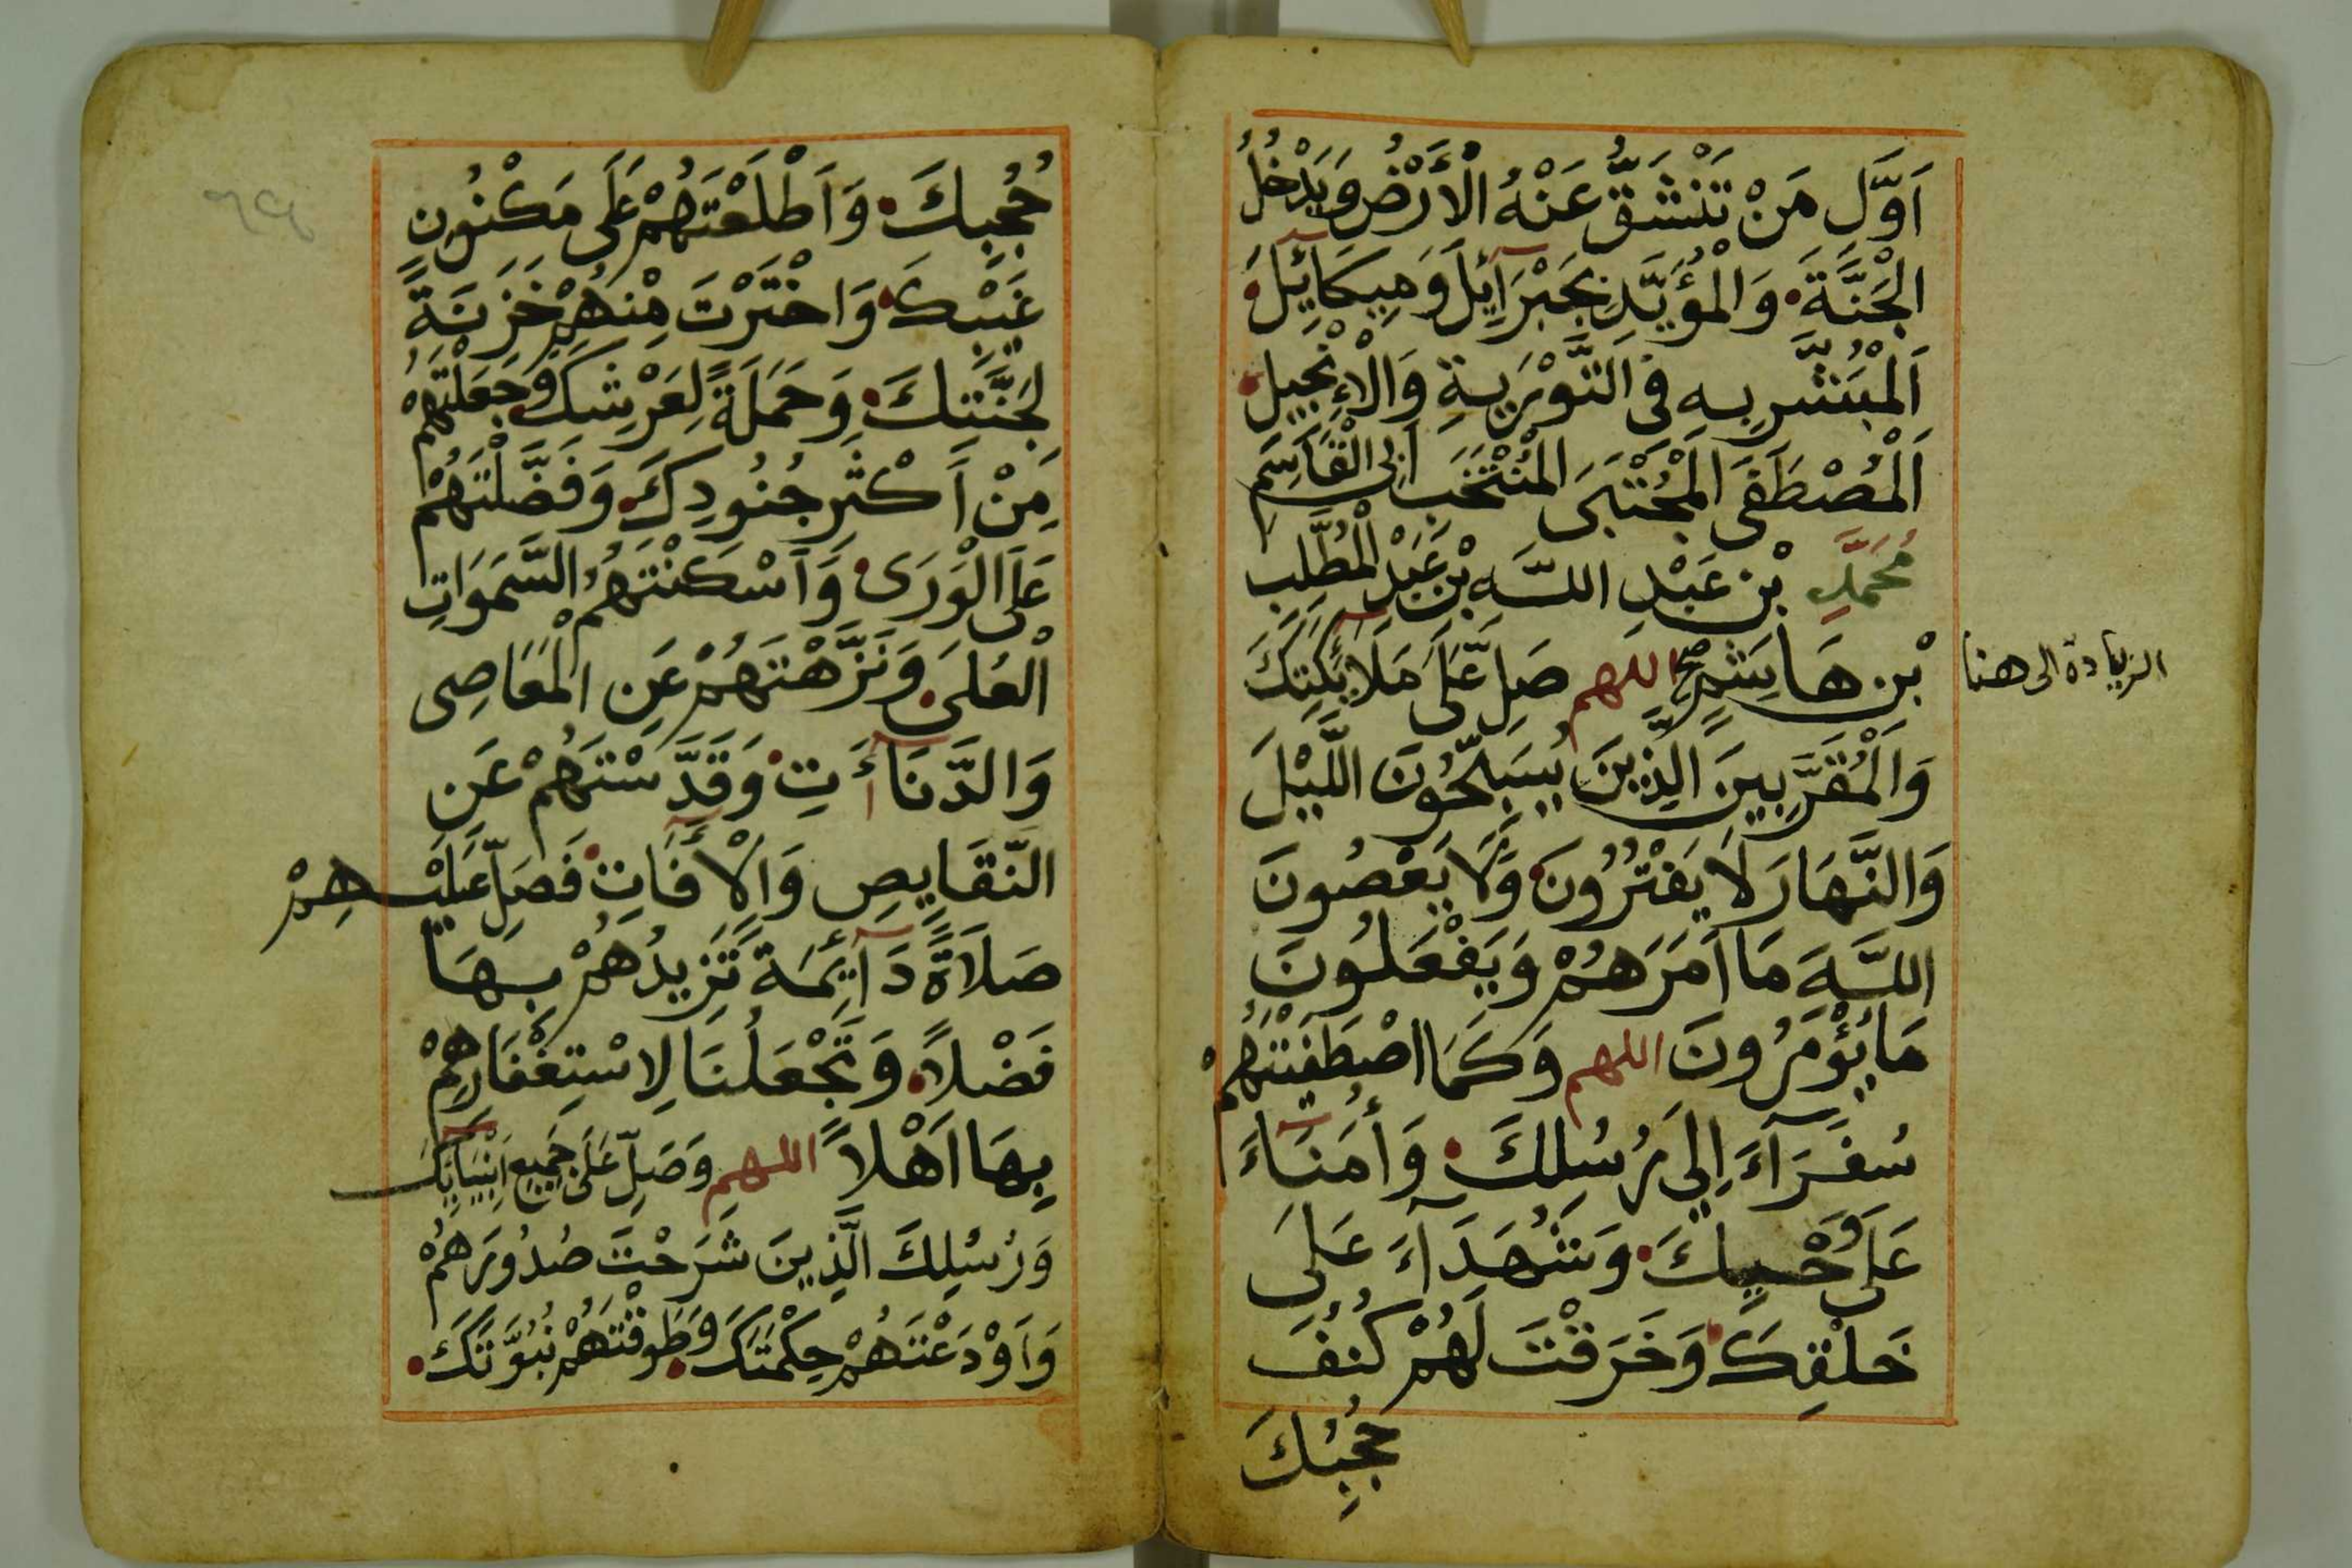 اَوَّلِ مَنْ تَنْشَقُّ عَنْهُ الْأَرْضُ وَيَدْخُلُ
الْجَنَّةَ وَالْمُؤَيَّدِ بِجَبْرَآئِيلَ وَمِيكَآئِيلَ
اَلْمُبَشَّرِ بِهِ فِى التَّوْرَيةِ وَالْإِنْجِيلِ
اَلْمُصْطَفَى الْمُجْتَبَى الْمُنْتَخَبِ اَبِى الْقَاسِمِ
مُحَمَّدِ بْنِ عَبْدِ اللَّهِ بْنِ عَبْدِ الْمُطَّلِبِ
بْنِ هَاشِمٍ صح اللهم صَلِّ عَلَى مَلَآئِكَتِكَ
الزيادة الى هنا
وَالْمُقَرَّبِينَ الَّذِينَ يُسَبِّحُونَ اللَّيْلَ
وَالنَّهَارَ لَا يَفْتُرُونَ وَلَا يَعْصُونَ
اللَّهَ مَا اَمَرَهُمْ وَيَفْعَلُونَ
مَا يُؤْمَرُونَ اللهم وَكَمَا اصْطَفَيْتَهُمْ
سُفَرَآءَ اِلَى رُسُلِكَ وَأُمَنَآءَ
عَلَى وَحْيِكَ وَشُهَدَآءَ عَلَى
خَلْقِكَ وَخَرَقْتَ لَهُمْ كُنُفَ
حُجُبِكَ
حُجُبِكَ وَاَطْلَعْتَهُمْ عَلَى مَكْنُونِ
غَيْبِكَ وَاخْتَرْتَ مِنْهُمْ خَزَنَةً
لِجَنَّتِكَ وَحَمَلَةً لِعَرْشِكَ وَجَعَلْتَهُمْ
مِنْ اَكْثَرِ جُنُودِكَ وَفَضَّلْتَهُمْ
عَلَى الْوَرَى وَاَسْكَنْتَهُمُ السَّمَوَاتِ
الْعُلَى وَنَزَّهْتَهُمْ عَنِ الْمَعَاصِى
وَالدَّنَاآءَتِ وَقَدَّسْتَهُمْ عَنِ
النَّقَايِصِ وَالْأَفَاتِ فَصَلِّ عَلَيْهِمْ
صَلَاَةً دَآئِمَةً تَزِيدُهُمْ بِهَا
فَضْلاً وَتَجْعَلُنَا لِاسْتِغْفَارِهِمْ
بِهَا اَهْلاً اللهم وَصَلِّ عَلَى جَمِيعِ اَنْبِيَآئِكَ
وَرُسُلِكَ الَّذِينَ شَرَحْتَ صُدُورَهُمْ
وَاَوْدَعْتَهُمْ حِكْمَتَكَ وَطَوقْتَهُمْ نُبُوَّتَكَ